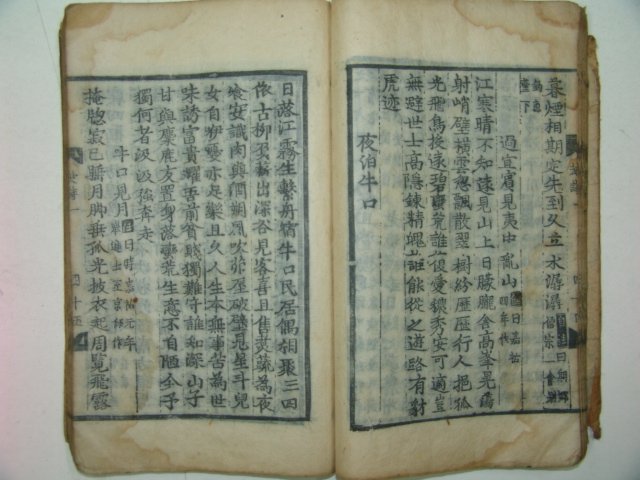 暮煙相期定先到久立水潺潺曰期鄉僧宗一會別
釣魚臺下
過宜賓見夷中亂山曰嘉祐四年作
江寒晴不知遠見山上日朦朧含高峯晃蕩
射峭壁橫雲忽飄散翠樹紛歷歷行人挹孤
光飛鳥投遠碧蠻荒誰復愛穠秀安可適豈
無避世士高隱鍊精魄誰能從之遊路有豺
虎迹
夜泊牛口
日落江霧生繫舟宿牛口民居偶相聚三四
依古柳負薪出深谷見客喜且售煑蔬為夜
飡安識肉與酒朔風吹茅屋破壁見星斗兒
女自咿嚘亦足樂且久人生本無事苦為世
味誘富貴耀吾前貧賤獨難守誰知深山子
甘與麋鹿友置身落蠻荒生意不自陋今予
獨何者汲汲強奔走
牛口見月曰時嘉祐元年舉進士至京師作
掩窓寂已睡月脚垂孤光披衣起周覽飛露
詩一
十五